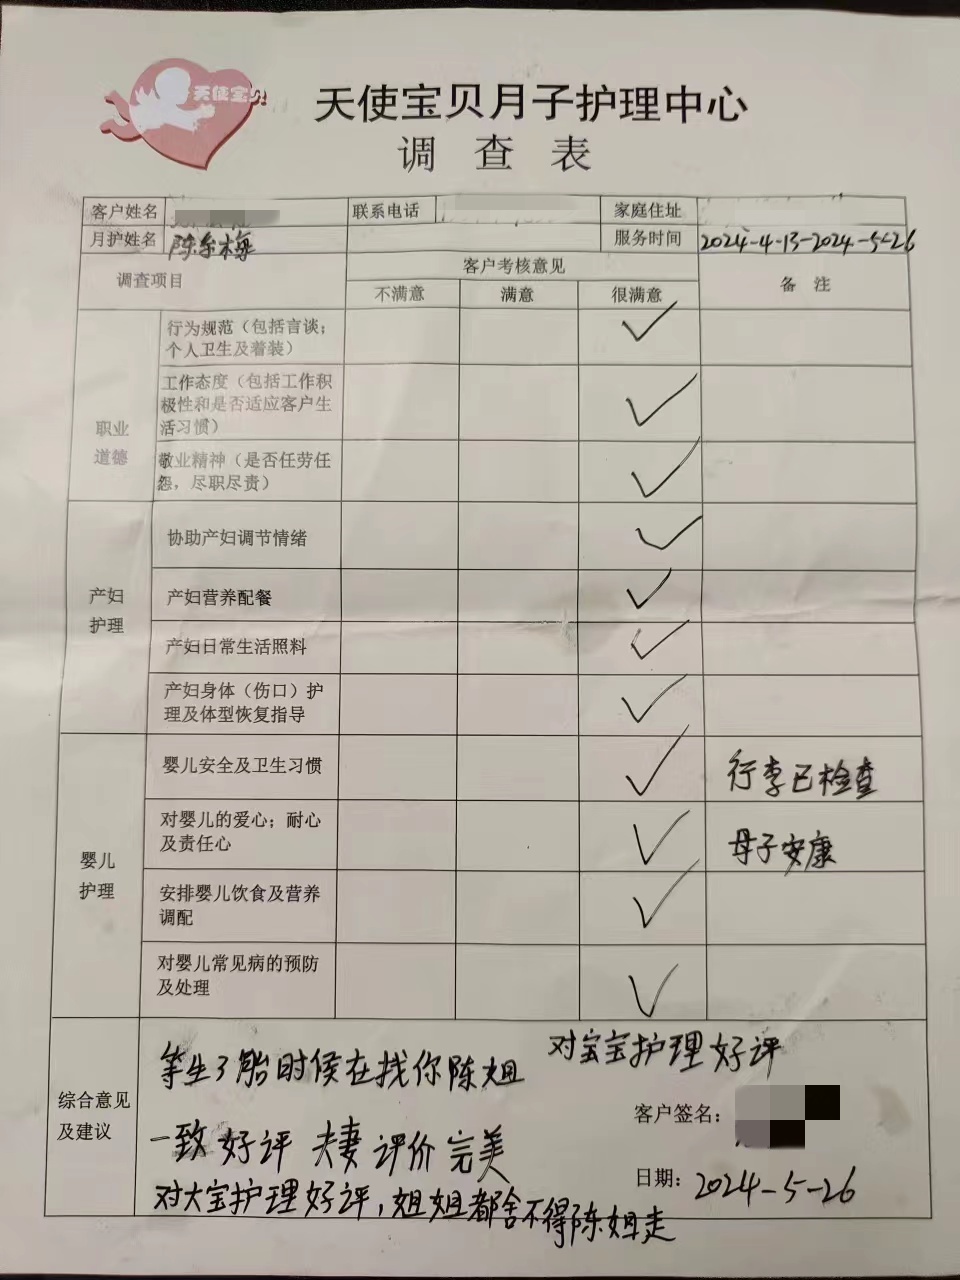 天使宝贝
天使宝贝月子护理中心
调查表
客户姓名 联系电话 家庭住址
月护姓名 陈冬梅 服务时间 2024-4-13-2024-5-26
调查项目 客户考核意见 备 注
不满意 满意 很满意
职业
道德
行为规范（包括言谈；
个人卫生及着装）
工作态度（包括工作积
极性和是否适应客户生
活习惯）
敬业精神（是否任劳任
怨，尽职尽责）
产妇
护理
协助产妇调节情绪
产妇营养配餐
产妇日常生活照料
产妇身体（伤口）护
理及体型恢复指导
婴儿
护理
婴儿安全及卫生习惯
行李已检查
对婴儿的爱心；耐心
及责任心
母子安康
安排婴儿饮食及营养
调配
对婴儿常见病的预防
及处理
综合意见
及建议
等生3胎时候在找你陈姐 对宝宝护理好评
一致好评 夫妻评价完美
对大宝护理好评，姐姐都舍不得陈姐走
客户签名：
日期：2024-5-26